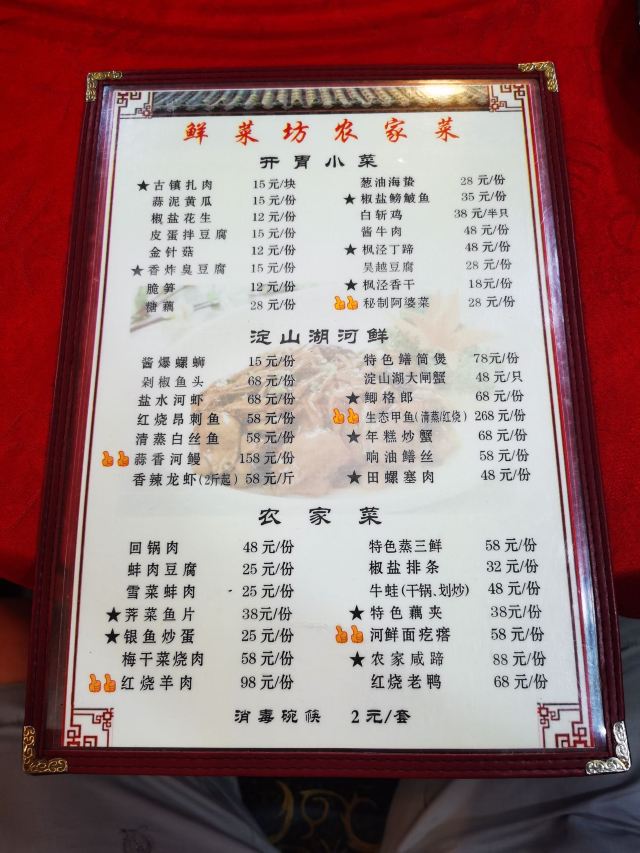 鲜菜坊农家菜
开胃小菜
★古镇扎肉 15元/块
蒜泥黄瓜 15元/份
椒盐花生 12元/份
皮蛋拌豆腐 15元/份
金针菇 12元/份
★香炸臭豆腐 15元/份
脆笋 12元/份
糖藕 28元/份
葱油海蛰 28元/份
★椒盐鳑鲏鱼 35元/份
白斩鸡 38元/半只
酱牛肉 48元/份
★枫泾丁蹄 48元/份
吴越豆腐 28元/份
★枫泾香干 18元/份
秘制阿婆菜 28元/份
淀山湖河鲜
酱爆螺蛳 15元/份
剁椒鱼头 68元/份
盐水河虾 68元/份
红烧昂刺鱼 58元/份
清蒸白丝鱼 58元/份
蒜香河鳗 158元/份
香辣龙虾(2斤起) 58元/斤
特色鳝筒煲 78元/份
淀山湖大闸蟹 48元/只
★鲫格郎 68元/份
生态甲鱼(清蒸/红烧) 268元/份
★年糕炒蟹 68元/份
响油鳝丝 58元/份
★田螺塞肉 48元/份
农家菜
回锅肉 48元/份
蚌肉豆腐 25元/份
雪菜蚌肉 25元/份
★荠菜鱼片 38元/份
★银鱼炒蛋 25元/份
梅干菜烧肉 58元/份
红烧羊肉 98元/份
特色蒸三鲜 58元/份
椒盐排条 32元/份
牛蛙(干锅、划炒) 48元/份
★特色藕夹 38元/份
河鲜面疙瘩 58元/份
★农家咸蹄 88元/份
红烧老鸭 68元/份
消毒碗筷 2元/套